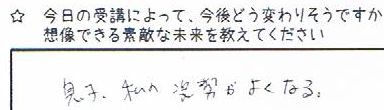 ☆ 今日の受講によって、今後どう変わりそうですか
想像できる素敵な未来を教えてください
息子、私の姿勢がよくなる。